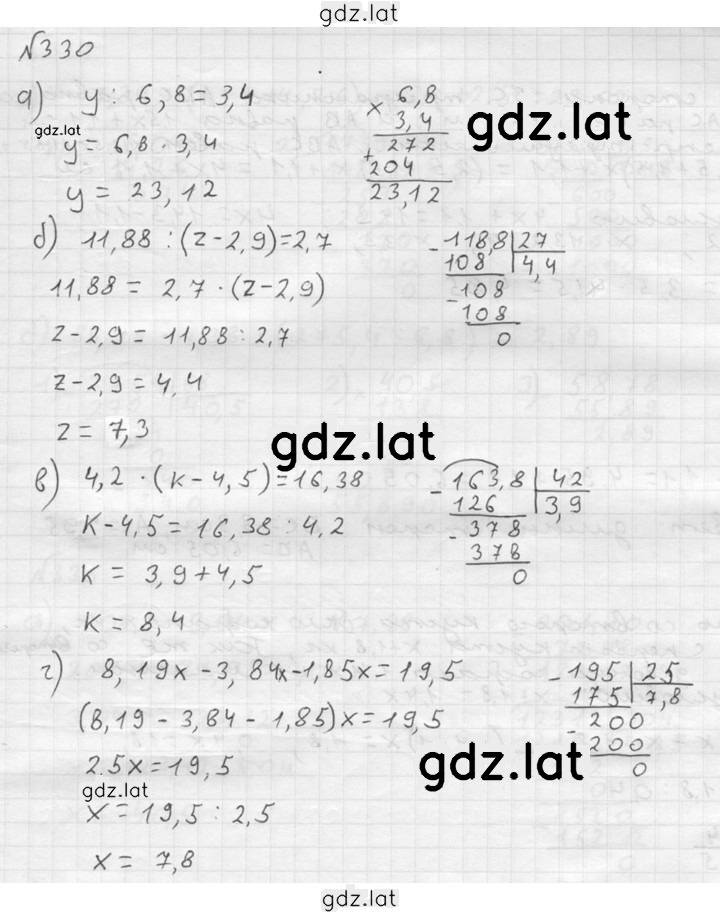 gdz.lat
№330
а) y : 6,8 = 3,4
gdz.lat
y = 6,8 · 3,4
y = 23,12
× 6,8
3,4
272
+ 204
23,12
gdz.lat
б) 11,88 : (z - 2,9) = 2,7
11,88 = 2,7 · (z - 2,9)
z - 2,9 = 11,88 : 2,7
z - 2,9 = 4,4
z = 7,3
- 118,8 | 27
108 | 4,4
- 108
108
0
gdz.lat
в) 4,2 · (к - 4,5) = 16,38
к - 4,5 = 16,38 : 4,2
к = 3,9 + 4,5
к = 8,4
- 163,8 | 42
126 | 3,9
- 378
378
0
г) 8,19x - 3,84x - 1,85x = 19,5
(8,19 - 3,84 - 1,85)x = 19,5
2.5x = 19,5
gdz.lat
x = 19,5 : 2,5
x = 7,8
- 195 | 25
175 | 7,8
- 200
200
0
gdz.lat
gdz.lat